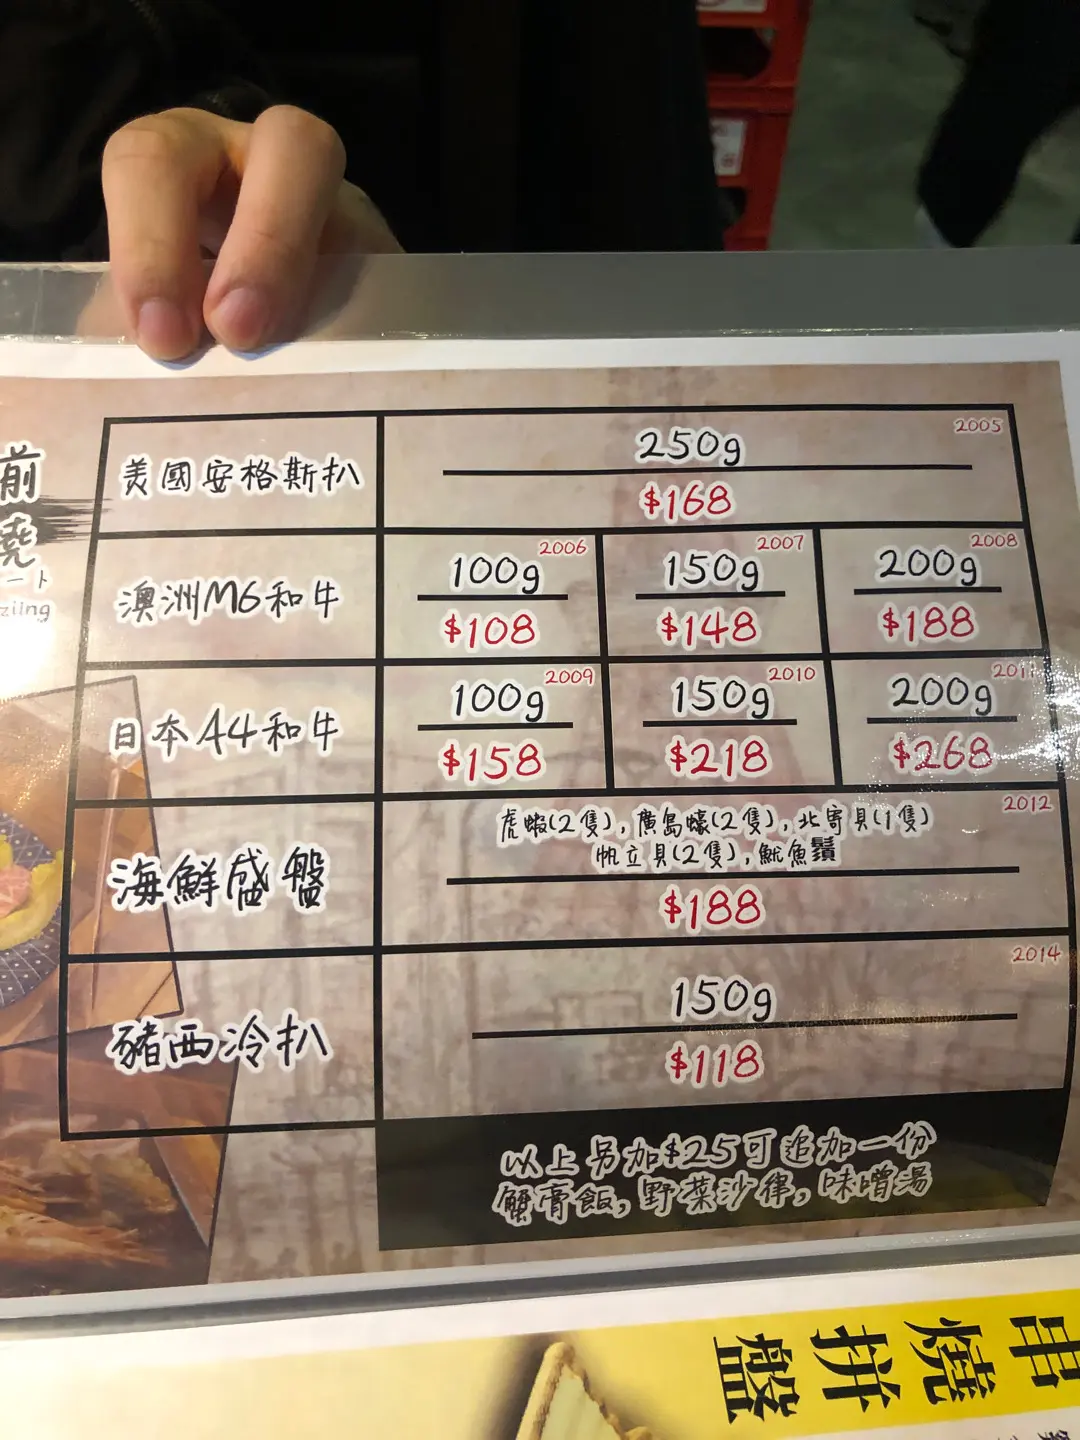 前
燒
ート
ziing
美國安格斯扒
2005
250g
$168
澳洲M6和牛
2006
100g
$108
2007
150g
$148
2008
200g
$188
日本A4和牛
2009
100g
$158
2010
150g
$218
200g
$268
海鮮盛盤
2012
虎蝦(2隻),廣島蠔(2隻),北寄貝(1隻)
帆立貝(2隻),魷魚鬚
$188
豬西冷扒
2014
150g
$118
以上另加$25可追加一份
蟹膏飯,野菜沙律,味噌湯
串燒拼盤